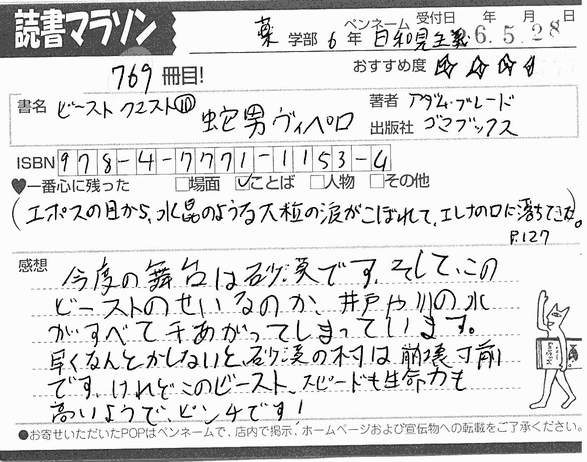 読書マラソン
ペンネーム 受付日 年 月 日
薬 学部 6 年 日和見主義 6.5.28
769 冊目!
おすすめ度 ☆☆☆☆
書名 ビースト クエスト⑪ 蛇男ヴィペロ
著者 アダム・ブレード
出版社 ゴマブックス
ISBN 978-4-7771-1153-4
♥一番心に残った □場面 ☑ことば □人物 □その他
(エポスの目から、水晶のような大粒の涙がこぼれて、エレナの口に落ちてきた。
P.127
感想
今度の舞台は砂漠です。そして、この
ビーストのせいなのか、井戸や川の水
がすべて干あがってしまっています。
早くなんとかしないと、砂漠の村は崩壊寸前
です。けれどこのビースト、スピードも生命力も
高いようで、ピンチです!
●お寄せいただいたPOPはペンネームで、店内で掲示、ホームページおよび宣伝物への転載をご了承ください。